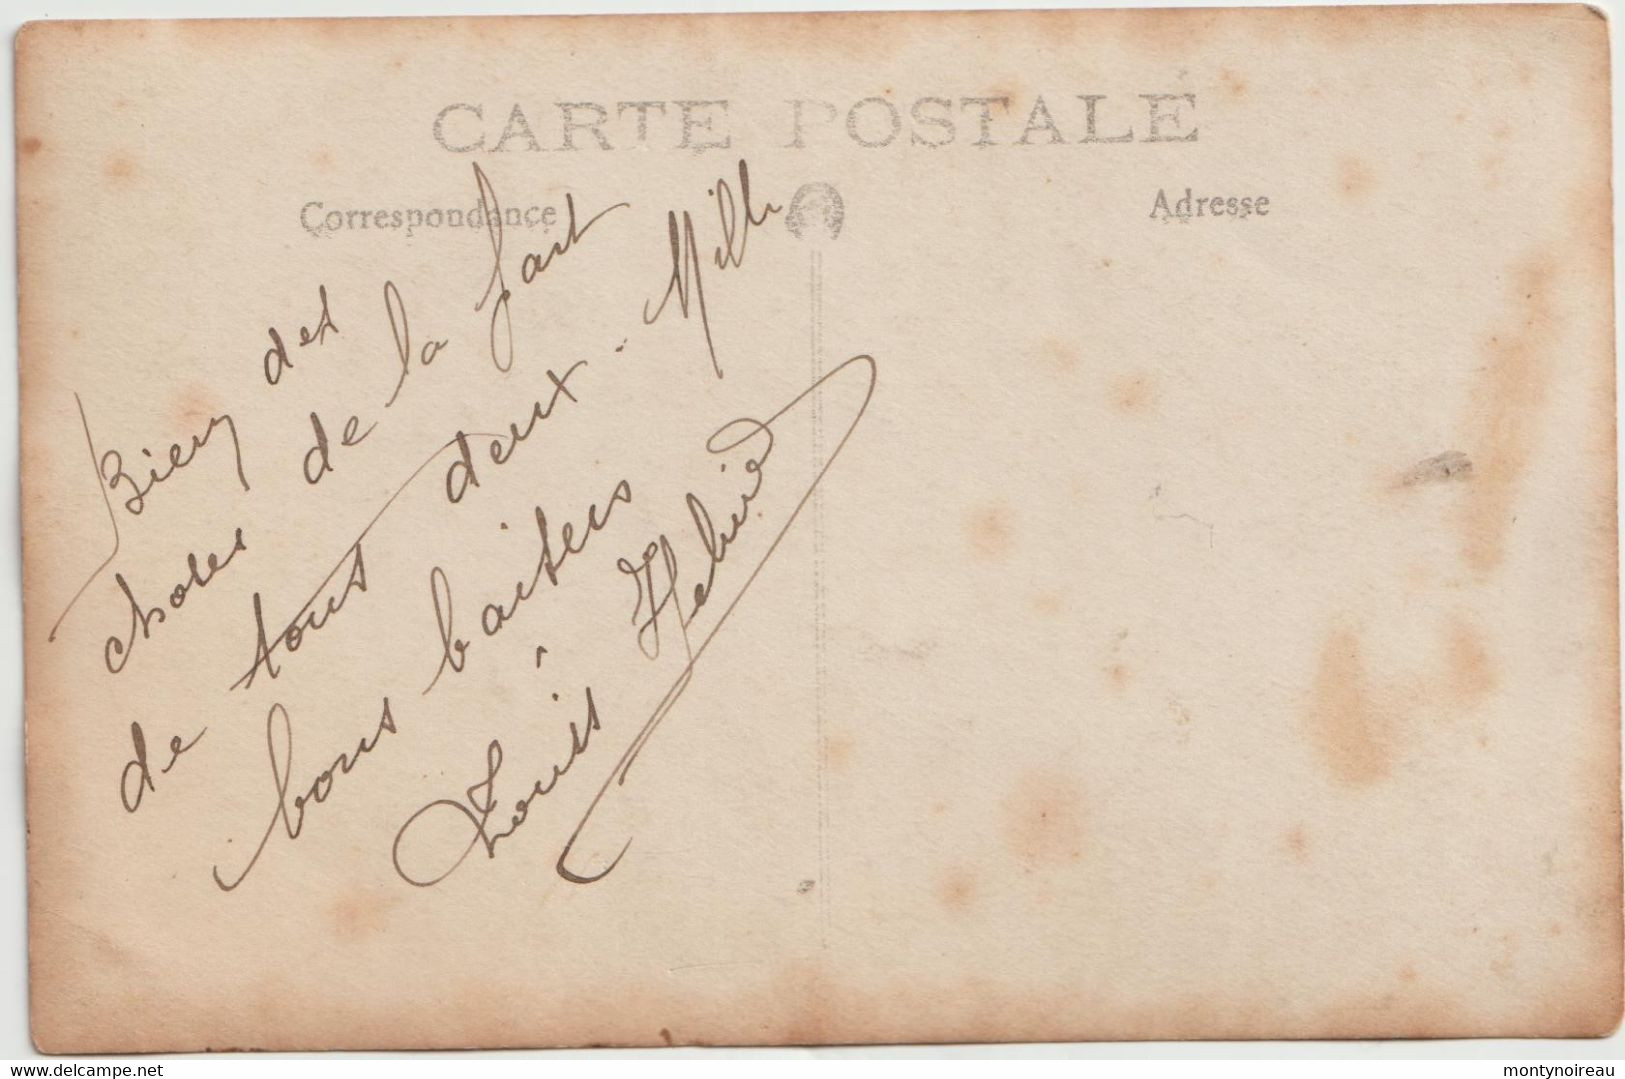 CARTE POSTALE
Correspondance
Adresse
Bien des
choses de la part
de tous deux. Mille
bons baisers
Louis
www.delcampe.net
montynoireau